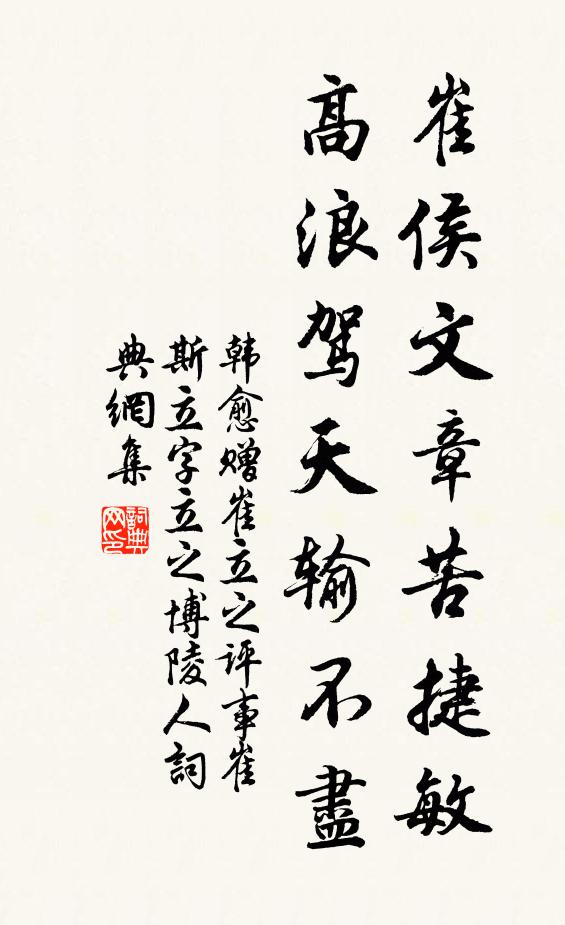 崔侯文章苦捷敏
高浪驾天输不盡
韩愈赠崔立之评事崔
斯立字立之博陵人詞
典網集
詞典网印